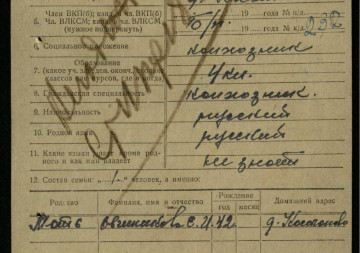 Член ВКП(б); канд. в чл. ВКП(б)
5. Чл. ВЛКСМ; канд. в чл. ВЛКСМ 19 года № п/п.
(нужное подчеркнуть) 19 года № к/л. 232
6. Социальное положение колхозник
Образование
7. (какое уч. заведен. оконч. сколько 4 кл.
классов или курсов, где и когда)
8. Гражданская специальность колхозник.
9. Национальность русский
10. Родной язык русский
11. Какие языки знает кроме род- не знает
ного и как ими владеет
12. Состав семьи: „1“ человек, а именно:
Родство Фамилия, имя и отчество Рождение Домашний адрес
год месяц
Мать С. И. 42 д.